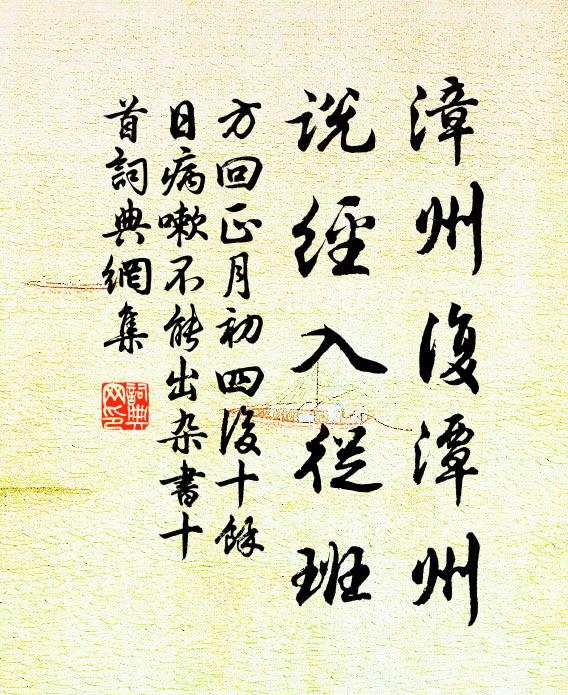 漳州復潭州
說經入從班
方回正月初四後十餘
日病嗽不能出杂書十
首詞典網集
詞典
网印